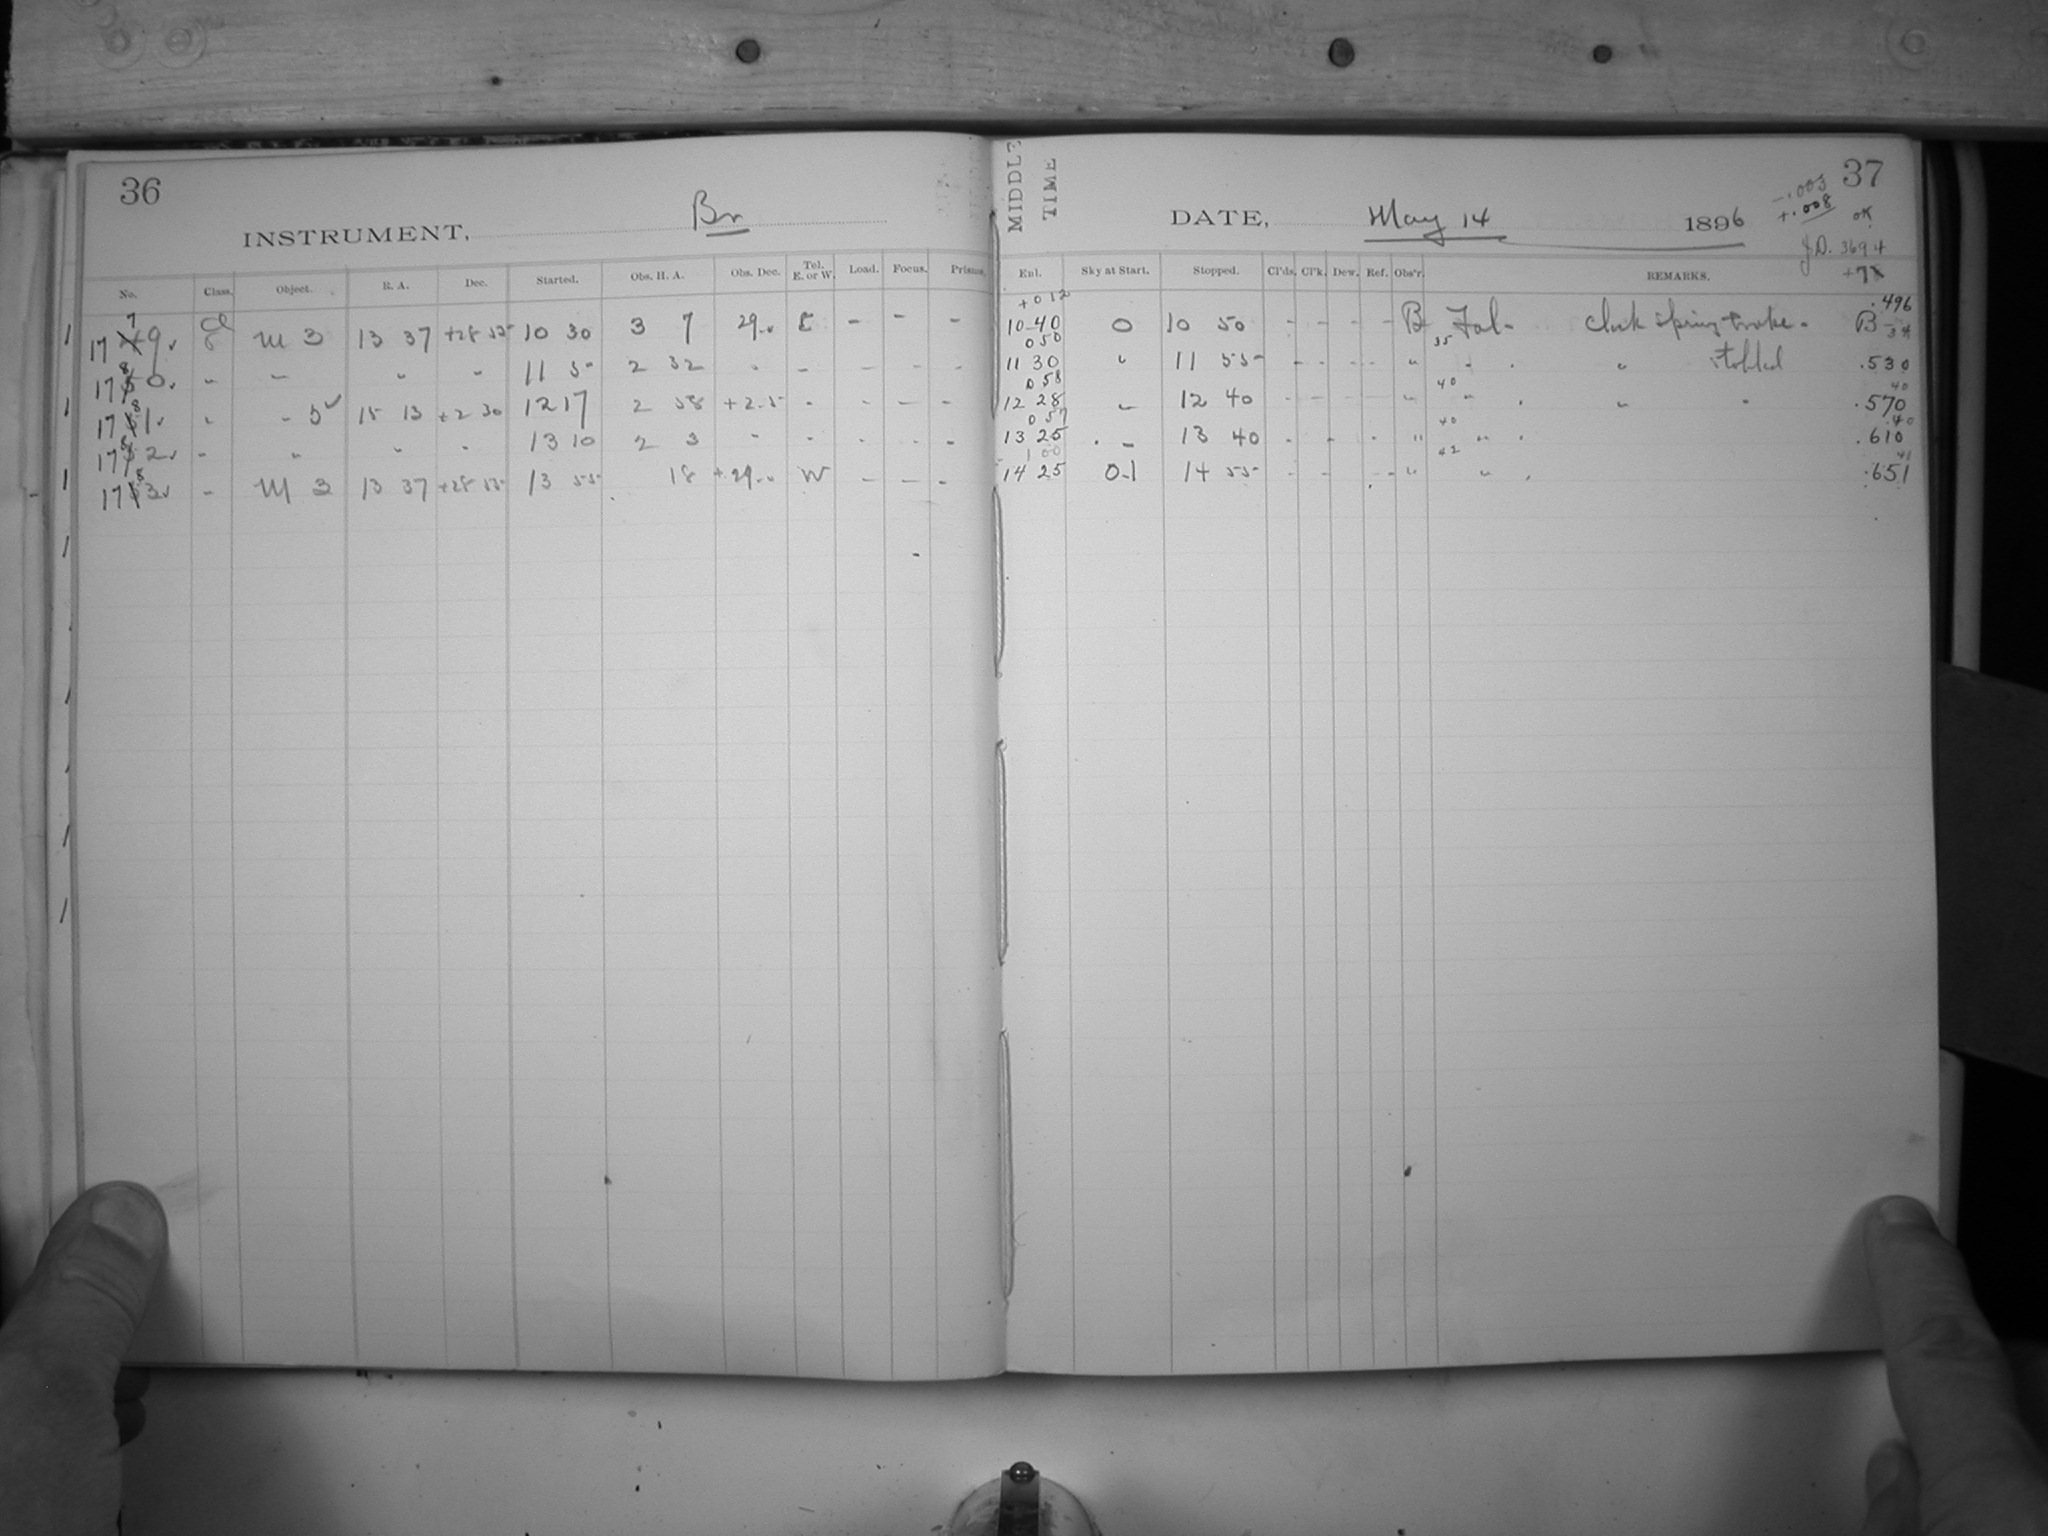 36
INSTRUMENT, Br
No. Class. Object. R. A. Dec. Started. Obs. H. A. Obs. Dec. Tel. E. or W. Load. Focus. Prisms.
1779 M 3 13 37 +28 55 10 30 3 7 29.0 E - - -
1780 " - " " 11 5 2 32 - - - - -
1781 " - 5 15 13 +2 30 12 17 2 58 +2.5 - - - -
1782 - " " - 13 10 2 3 - - - - -
1783 - M 3 13 37 +28 55 13 55 18 +29.0 W - - -
MIDDLE
TIME
37
DATE, May 14 1896
-.003
+.008
OK
J.D. 3694
+7
Enl. Sky at Start. Stopped. Cl'ds. Cl'k. Dew. Ref. Obs'r. REMARKS.
+0 12 .496
10 40 0 10 50 - - - - B Fal. Clock spring broke. B 34
0 50 35
11 30 " 11 55 - - - - " " . " stopped .530
0 58 40 40
12 28 " 12 40 - - - - " " . " " .570
0 57 40 40
13 25 . - 13 40 - - - " " . .610
1 00 42 41
14 25 0-1 14 55 - - - - " " . .651